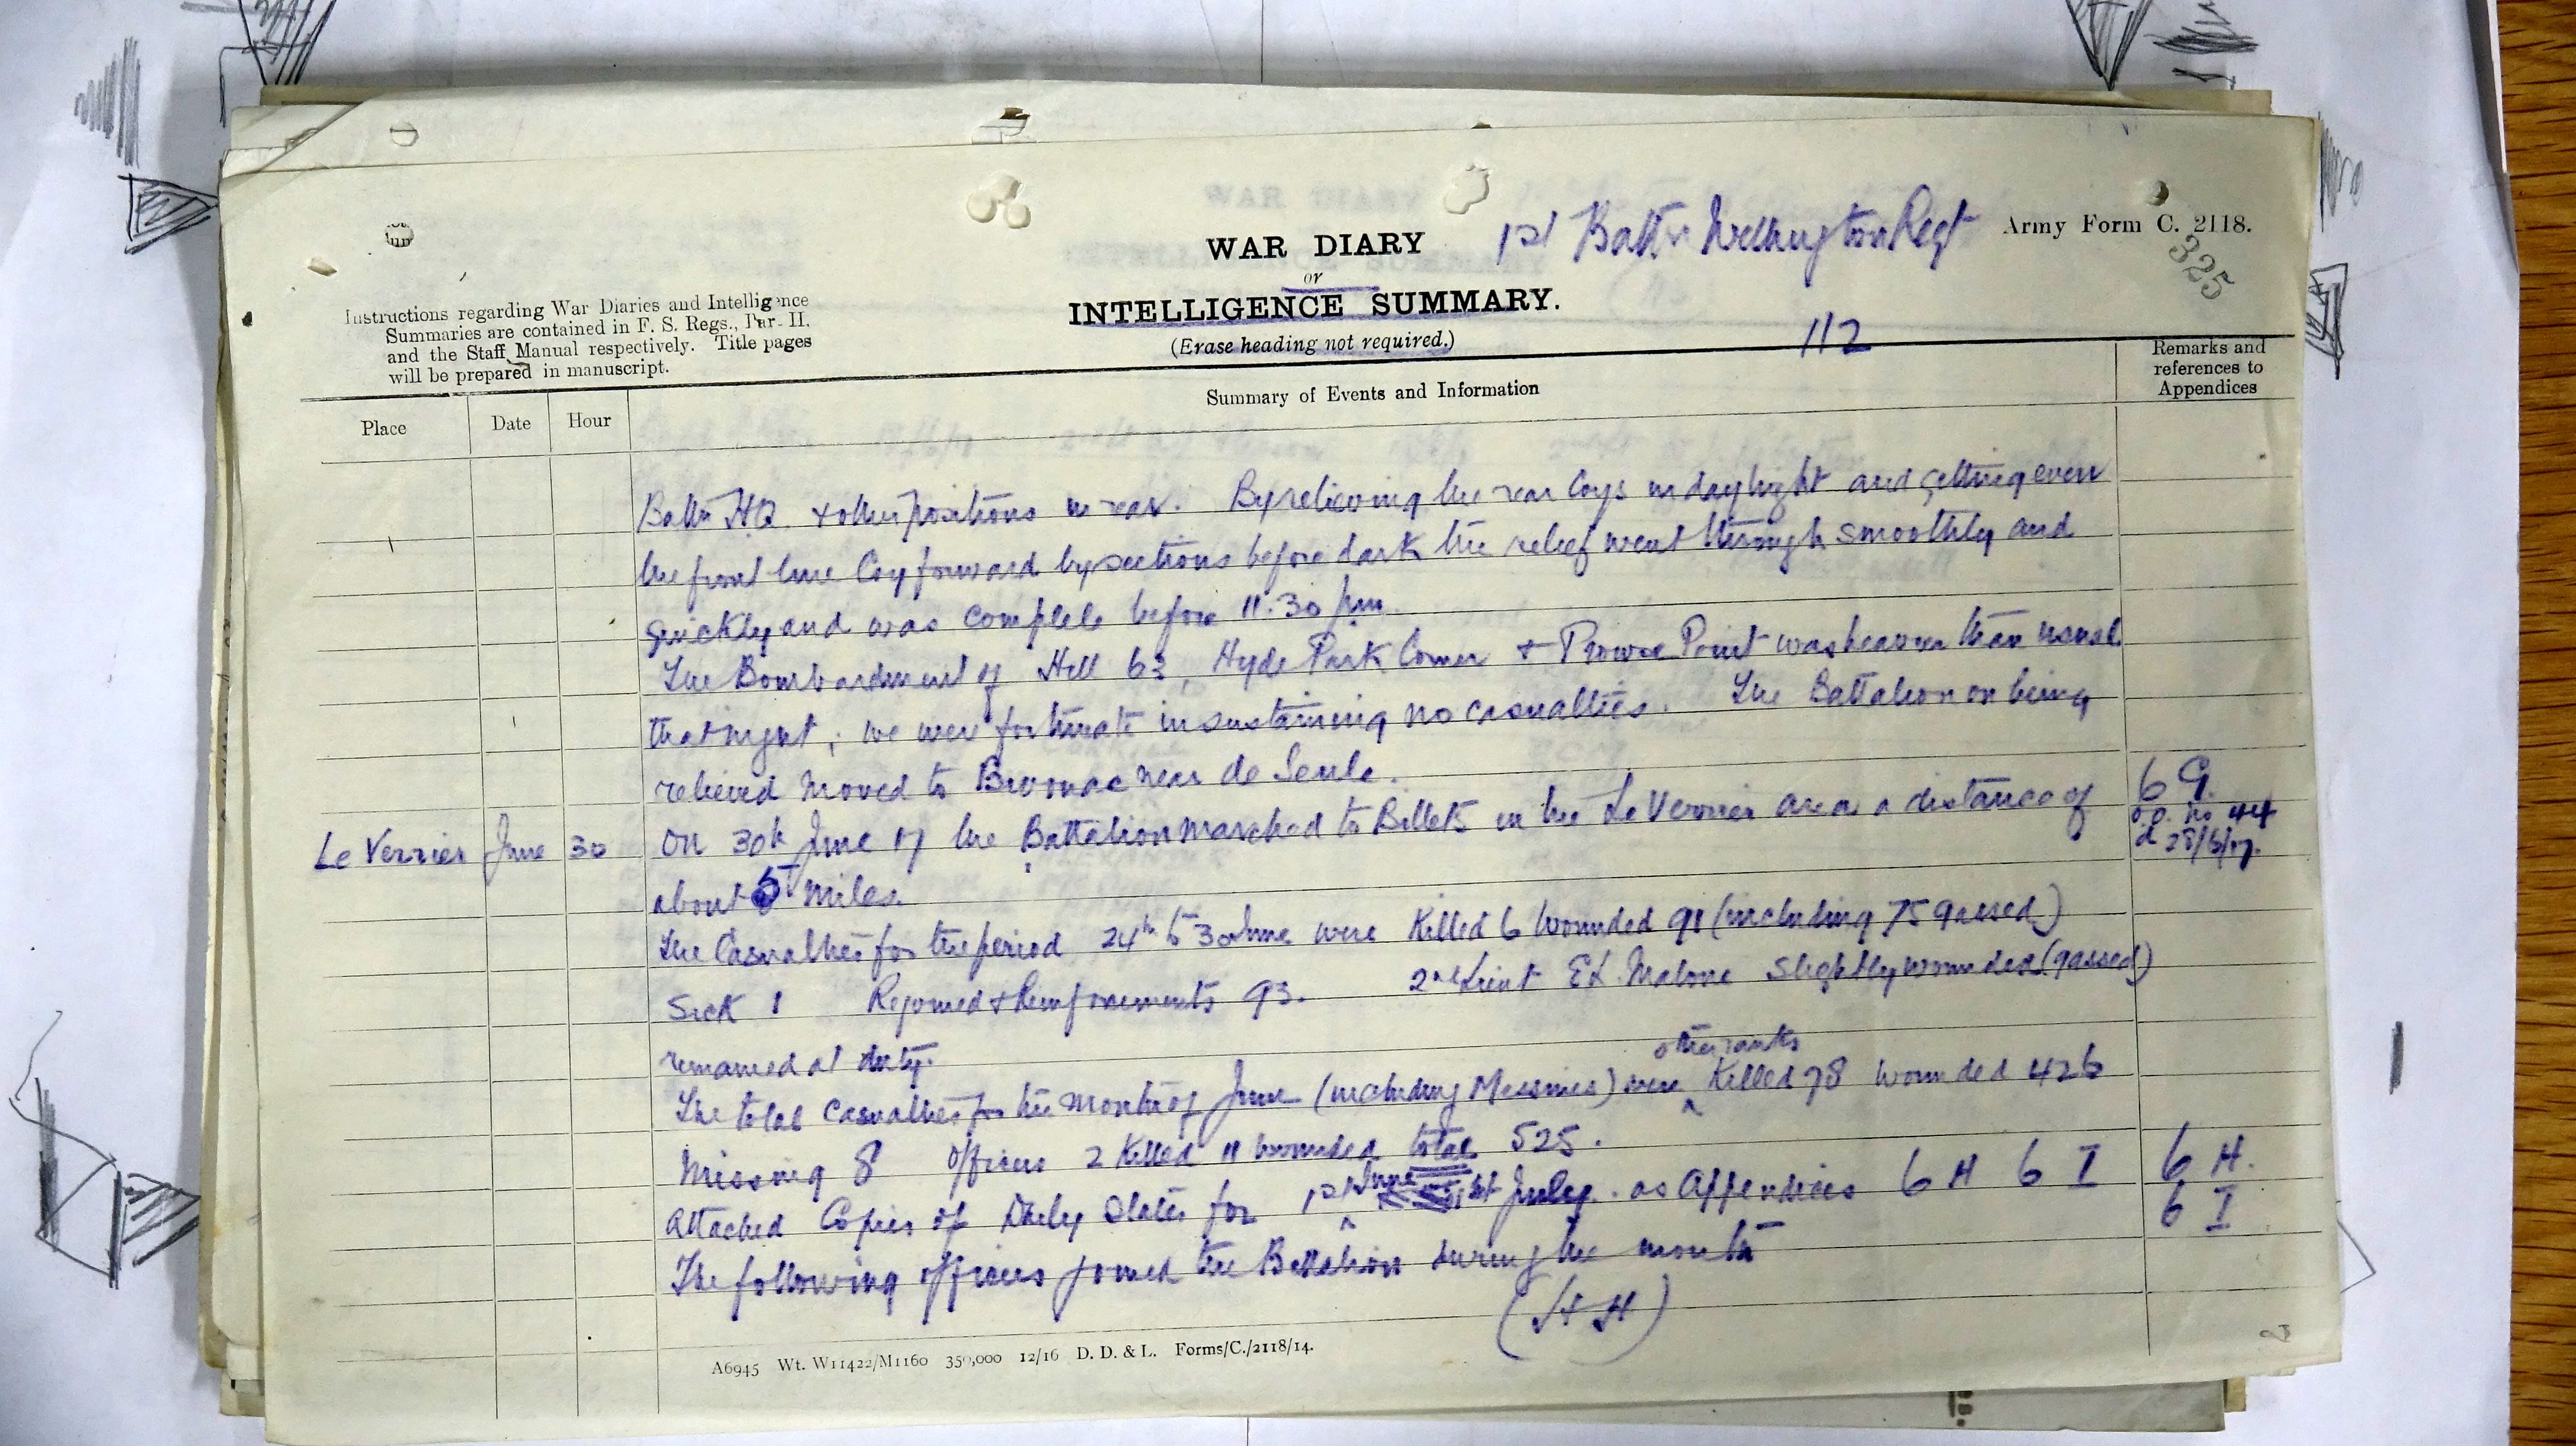 WAR DIARY
or
INTELLIGENCE SUMMARY.
(Erase heading not required.)
1st Battn Wellington Regt
Army Form C. 2118.
325
112
Instructions regarding War Diaries and Intelligence
Summaries are contained in F. S. Regs., Part II.
and the Staff Manual respectively. Title pages
will be prepared in manuscript.
Place
Date
Hour
Summary of Events and Information
Remarks and
references to
Appendices
Battn HQ. & other positions in rear. By relieving the rear Coys in daylight and getting even
the front line Coy forward by sections before dark the relief went through smoothly and
quickly and was complete before 11.30 pm.
The Bombardment of Hill 63, Hyde Park Corner & Prowse Point was heavier than usual
that night, we were fortunate in sustaining no casualties. The Battalion on being
relieved moved to Bivouac near de Seule.
Le Verrier June 30 On 30th June 17 the Battalion marched to Billets in the Le Verrier area a distance of
about 5 miles.
6 G.
o.o. no 44
d 28/6/17.
The Casualties for the period 24th to 30 June were Killed 6 Wounded 91 (including 75 gassed)
Sick 1 Rejoined & Reinforcements 93. 2nd Lieut E.L. Malone slightly wounded (gassed)
remained at duty.
The total casualties for the month of June (including Messines) were other ranks Killed 78 wounded 426
Missing 8 Officers 2 Killed 11 wounded total 525.
Attached Copies of Daily States for 1st June 1st July. as Appendices 6 H 6 I
6 H.
6 I
The following officers joined the Battalion during the month
(H H)
A6945 Wt. W11422/M1160 350,000 12/16 D. D. & L. Forms/C./2118/14.